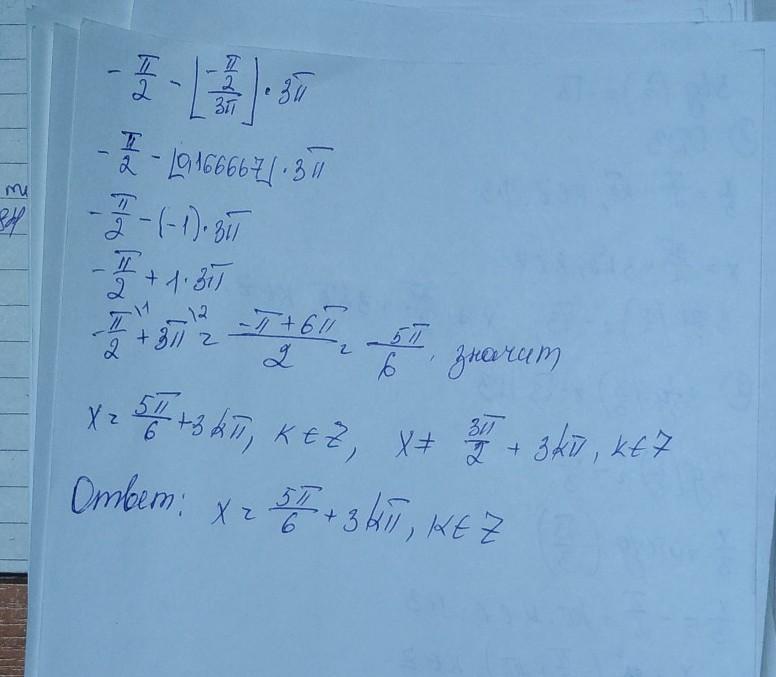 -π/2 - ⌊(-π/2)/3π⌋ · 3π
-π/2 - ⌊0,166667⌋ · 3π
-π/2 - (-1) · 3π
-π/2 + 1 · 3π
-π/2 \1 + 3π \2 = (-π + 6π)/2 = 5π/6, значит
x = 5π/6 + 3kπ, k ∈ Z, x ≠ 3π/2 + 3kπ, k ∈ Z
Ответ: x = 5π/6 + 3kπ, k ∈ Z